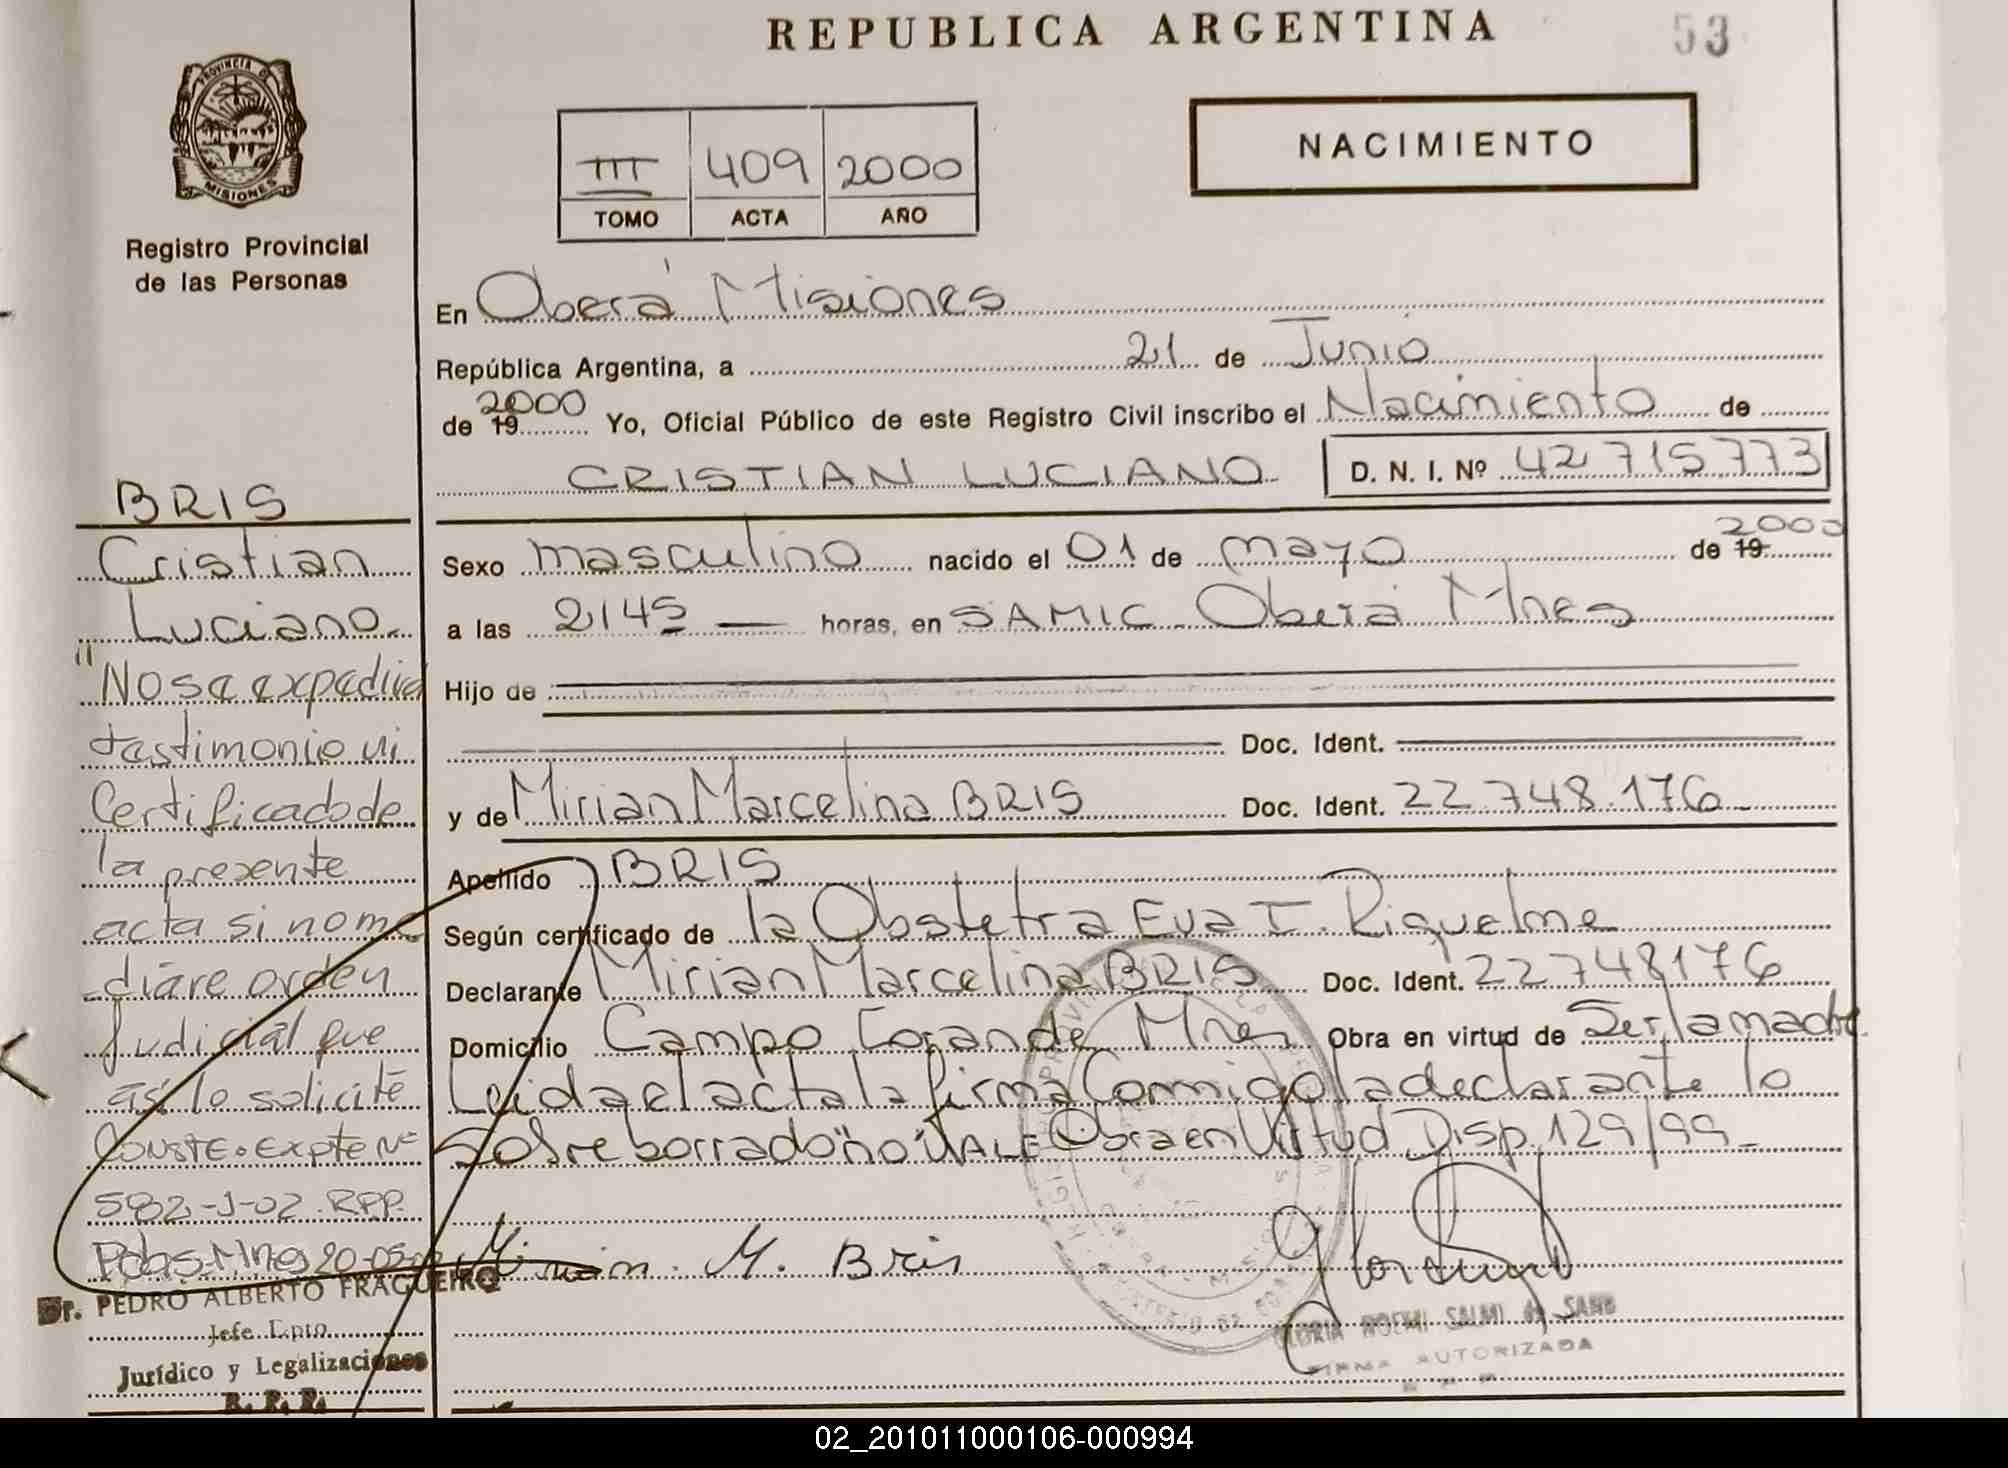 REPUBLICA ARGENTINA
53
PROVINCIA DE
MISIONES
Registro Provincial
de las Personas
III 409 2000
TOMO ACTA AÑO
NACIMIENTO
En Oberá Misiones
República Argentina, a 21 de Junio
de 19 2000 Yo, Oficial Público de este Registro Civil inscribo el Nacimiento de
CRISTIAN LUCIANO D. N. I. Nº 42 715.773
Sexo masculino nacido el 01 de mayo de 19 2000
a las 2145 — horas, en SAMIC. Oberá Mnes
Hijo de
Doc. Ident.
y de Mirian Marcelina BRIS Doc. Ident. 22.748.176
Apellido BRIS
Según certificado de la Obstetra Eva I. Riquelme
Declarante Mirian Marcelina BRIS Doc. Ident. 22748176
Domicilio Campo Grande Mnes Obra en virtud de Ser la madre
Leida el acta la firma Conmigo la declarante lo
Sobreborrado "no" VALE Obra en Virtud Disp. 129/99-
Mirian. M. Bris
GLORIA NOEMI SALMI de SAND
FIRMA AUTORIZADA
BRIS
Cristian
Luciano.-
"No se expedira
testimonio ni
Certificado de
la presente
acta si no me
diare orden
Judicial que
así lo solicite
CONSTE. Expte Nº
582-J-02. RPP.
Pdas. Mnes 20-05-02
Dr. PEDRO ALBERTO FRAGUEIRO
Jefe Dpto.
Jurídico y Legalizaciones
R. P. P.
02_201011000106-000994